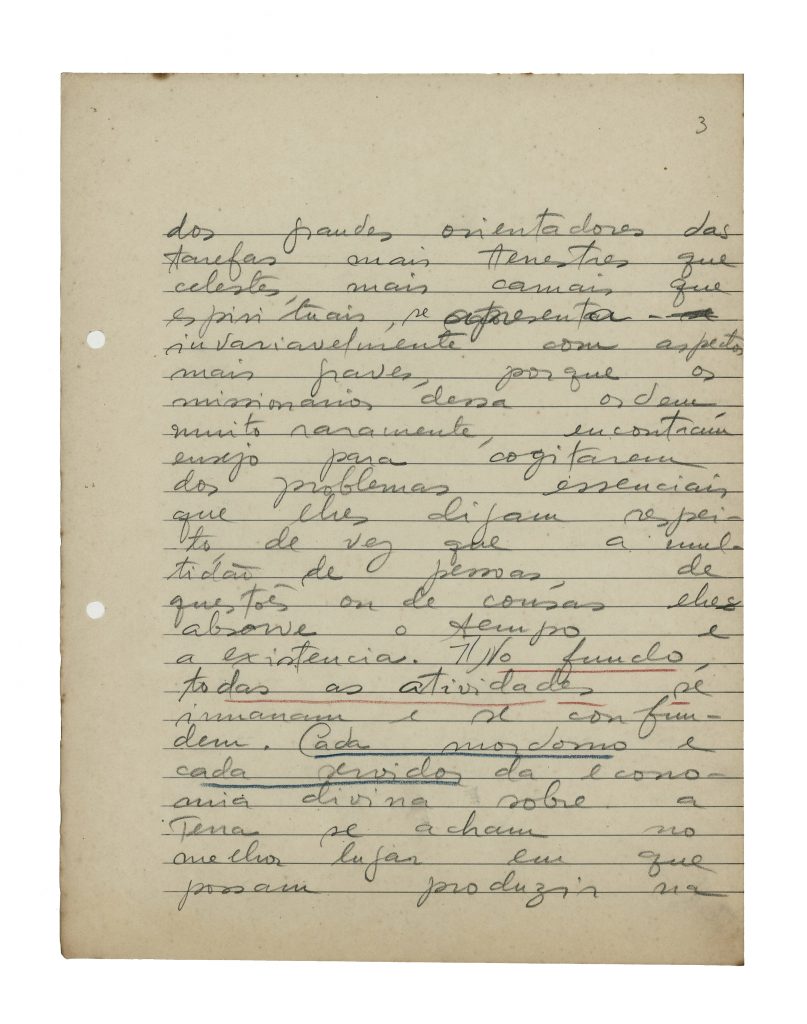 3
dos grandes orientadores das
tarefas mais terrestres que
celestes, mais carnais que
espirituais, se apresenta
invariavelmente com aspectos
mais graves, porque os
missionarios dessa ordem
muito raramente, encontram
ensejo para cogitarem
dos problemas essenciais
que lhes digam respei-
to, de vez que a mul-
tidão de pessoas, de
questões ou de cousas lhes
absorve o tempo e
a existencia. No fundo,
todas as atividades se
irmanam e se confun-
dem. Cada mordomo e
cada servidor da econo-
mia divina sobre a
Terra se acham no
melhor lugar em que
possam produzir na